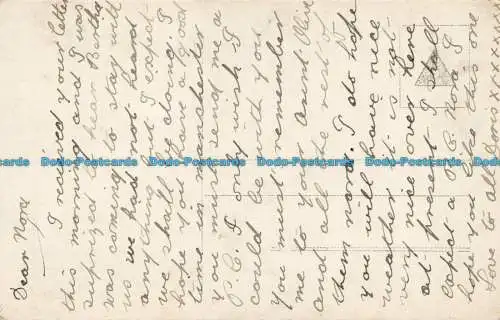 Dear Nora
I received your letter
this morning and I was
suprized to hear
was coming to stay with
us we had not heard
anything but I expect
we shall be I
hope you will have a good
time in manchester
you must send me a
P.C. I only wish I
could be with you
You must remember
me to your aunt Olive
and all the rest of
them nora. I do hope
you will have nice
weather it is not
very nice over here
at present I shall
expect a P.C. Nora I
hope you like this one
love to all
Dodo-Postcards Dodo-Postcards Dodo-Postcards Dodo-Postcards
Dodo-Postcards Dodo-Postcards Dodo-Postcards